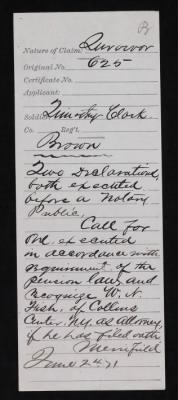 B
Nature of Claim, Survivor
Original No. 625
Certificate No.
Applicant:
Soldier Timothy Clark
Co. Reg't.
Brown
Two Declarations,
both executed
before a Notary
Public.
Call for
one executed
in accordance with
requirement of the
pension law, and
recognize W. N.
Fish, of Collins
Center, N.Y. as Attorney,
if he has filed oath
Merrifield
June 24